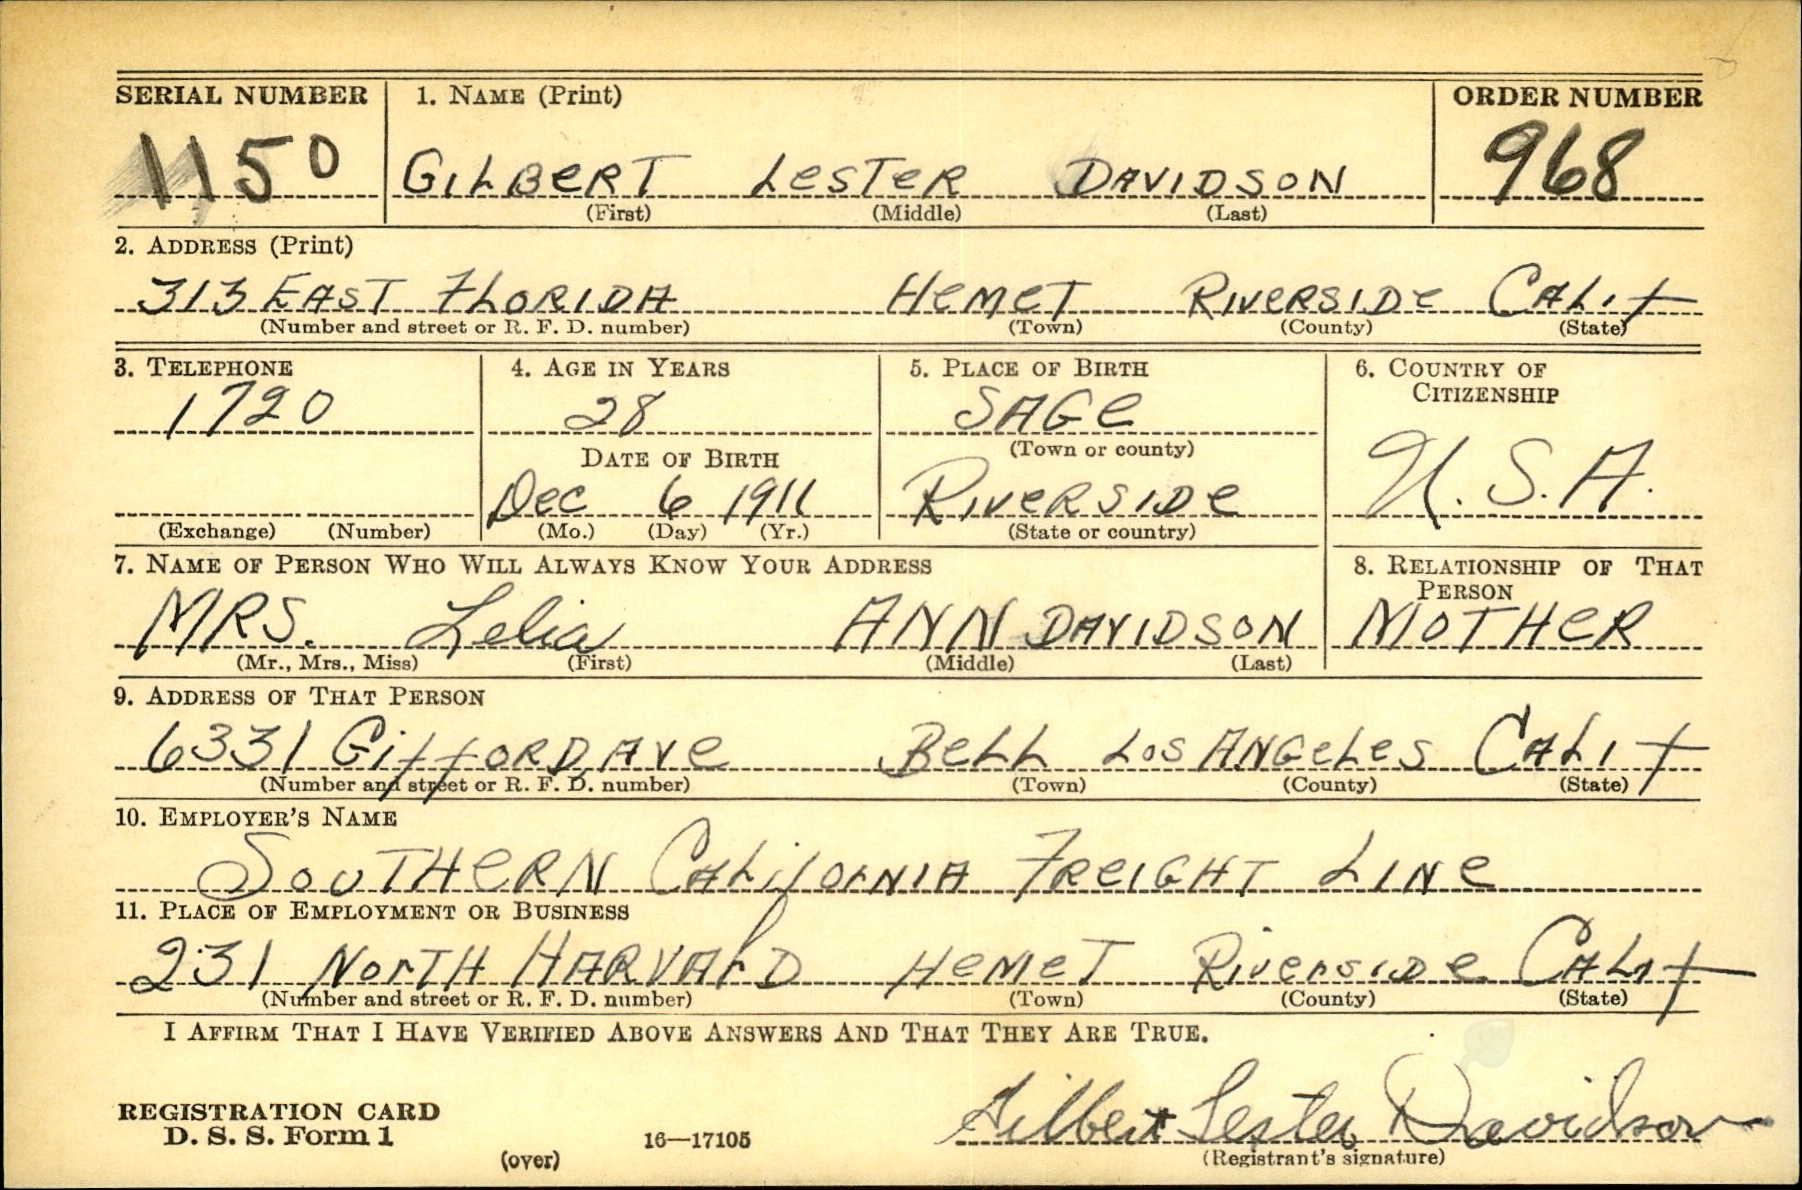 SERIAL NUMBER 1. NAME (Print) ORDER NUMBER
1150 GILBERT LESTER DAVIDSON 968
(First) (Middle) (Last)
2. ADDRESS (Print)
313 EAST FLORIDA HEMET RIVERSIDE CALIF
(Number and street or R. F. D. number) (Town) (County) (State)
3. TELEPHONE 4. AGE IN YEARS 5. PLACE OF BIRTH 6. COUNTRY OF CITIZENSHIP
1720 28 SAGE
DATE OF BIRTH (Town or county) U.S.A.
Dec 6 1911 RIVERSIDE
(Exchange) (Number) (Mo.) (Day) (Yr.) (State or country)
7. NAME OF PERSON WHO WILL ALWAYS KNOW YOUR ADDRESS 8. RELATIONSHIP OF THAT PERSON
MRS. Lelia ANN DAVIDSON MOTHER
(Mr., Mrs., Miss) (First) (Middle) (Last)
9. ADDRESS OF THAT PERSON
6331 GiffORD AVE BELL LOS ANGELES CALIF
(Number and street or R. F. D. number) (Town) (County) (State)
10. EMPLOYER'S NAME
SOUTHERN CALIFORNIA FREIGHT LINE
11. PLACE OF EMPLOYMENT OR BUSINESS
231 NORTH HARVARD HEMET RIVERSIDE CALIF
(Number and street or R. F. D. number) (Town) (County) (State)
I AFFIRM THAT I HAVE VERIFIED ABOVE ANSWERS AND THAT THEY ARE TRUE.
REGISTRATION CARD
D. S. S. Form 1 Gilbert Lester Davidson
(over) 16—17105 (Registrant's signature)